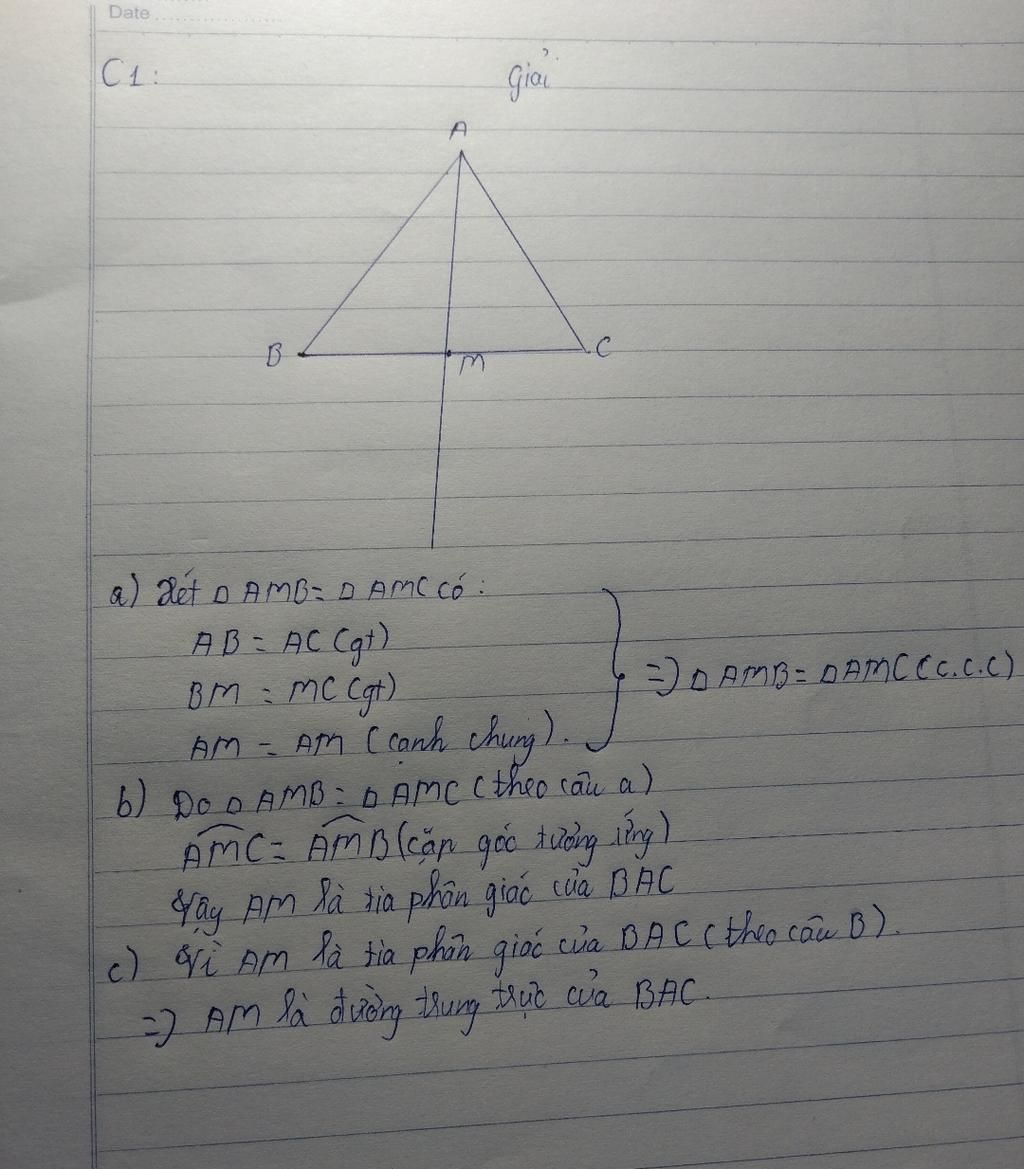 Date
C1:
Giải
A
B
M
C
a) Xét Δ AMB = Δ AMC có:
AB = AC (gt)
BM = MC (gt)
AM = AM (cạnh chung).
=> Δ AMB = Δ AMC (c.c.c)
b) Do Δ AMB = Δ AMC (theo câu a)
AMC = AMB (cặp góc tưởng ứng)
Vậy AM là tia phân giác của BAC
c) Vì AM là tia phân giác của BAC (theo câu B).
=> AM là đường trung trực của BAC.